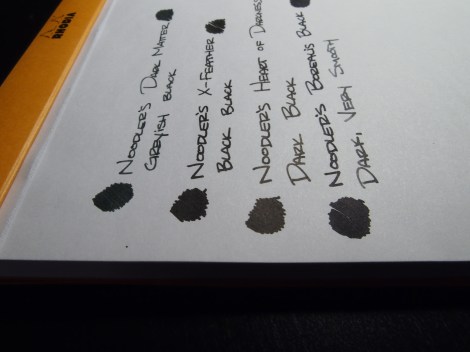 RHODIA
NOODLER'S DARK MATTER
GREYISH BLACK
NOODLER'S X-FEATHER
BLACK BLACK
NOODLER'S HEART OF DARKNESS
DARK BLACK
NOODLER'S BOREALIS BLACK
DARK, VERY SMOOTH